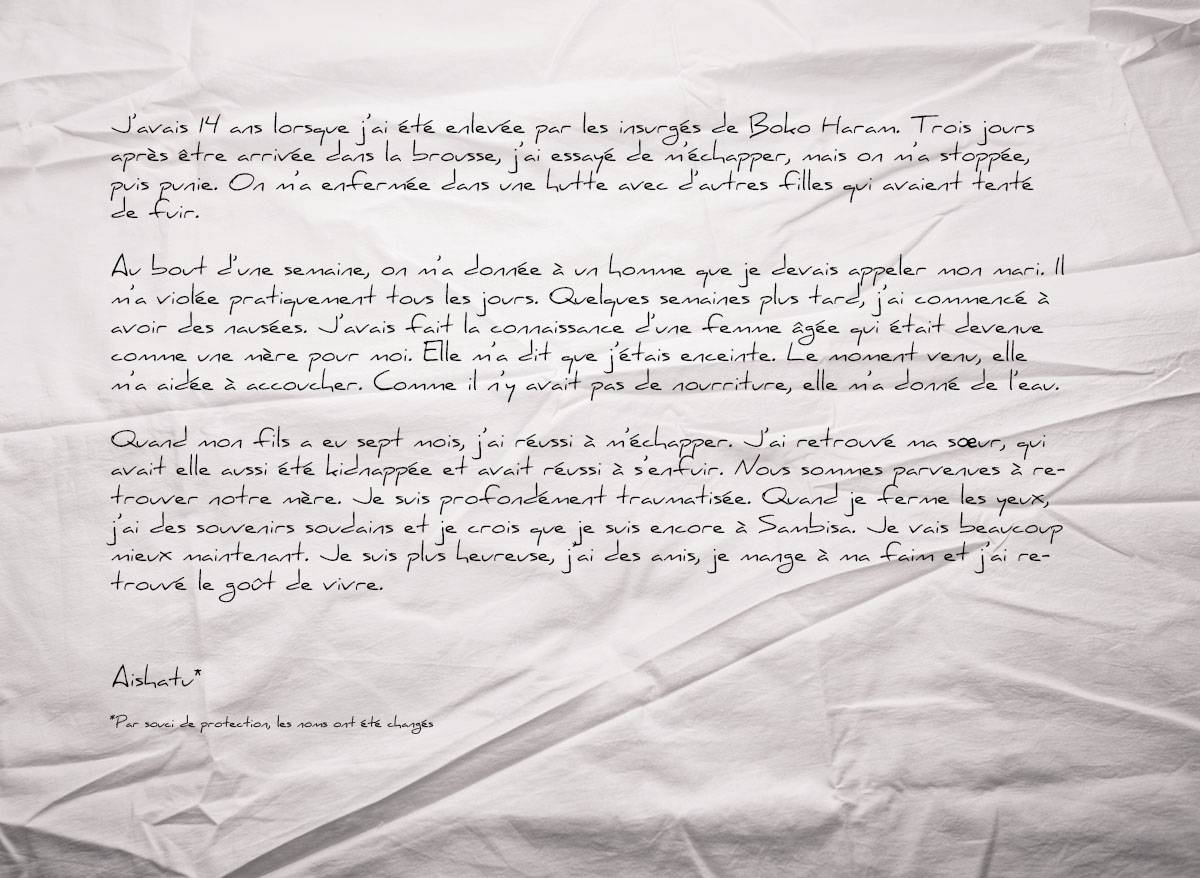 J'avais 14 ans lorsque j'ai été enlevée par les insurgés de Boko Haram. Trois jours
après être arrivée dans la brousse, j'ai essayé de m'échapper, mais on m'a stoppée,
puis punie. On m'a enfermée dans une hutte avec d'autres filles qui avaient tenté
de fuir.
Au bout d'une semaine, on m'a donnée à un homme que je devais appeler mon mari. Il
m'a violée pratiquement tous les jours. Quelques semaines plus tard, j'ai commencé à
avoir des nausées. J'avais fait la connaissance d'une femme âgée qui était devenue
comme une mère pour moi. Elle m'a dit que j'étais enceinte. Le moment venu, elle
m'a aidée à accoucher. Comme il n'y avait pas de nourriture, elle m'a donné de l'eau.
Quand mon fils a eu sept mois, j'ai réussi à m'échapper. J'ai retrouvé ma sœur, qui
avait elle aussi été kidnappée et avait réussi à s'enfuir. Nous sommes parvenues à re-
trouver notre mère. Je suis profondément traumatisée. Quand je ferme les yeux,
j'ai des souvenirs soudains et je crois que je suis encore à Sambisa. Je vais beaucoup
mieux maintenant. Je suis plus heureuse, j'ai des amis, je mange à ma faim et j'ai re-
trouvé le goût de vivre.
Aishatu*
*Par souci de protection, les noms ont été changés